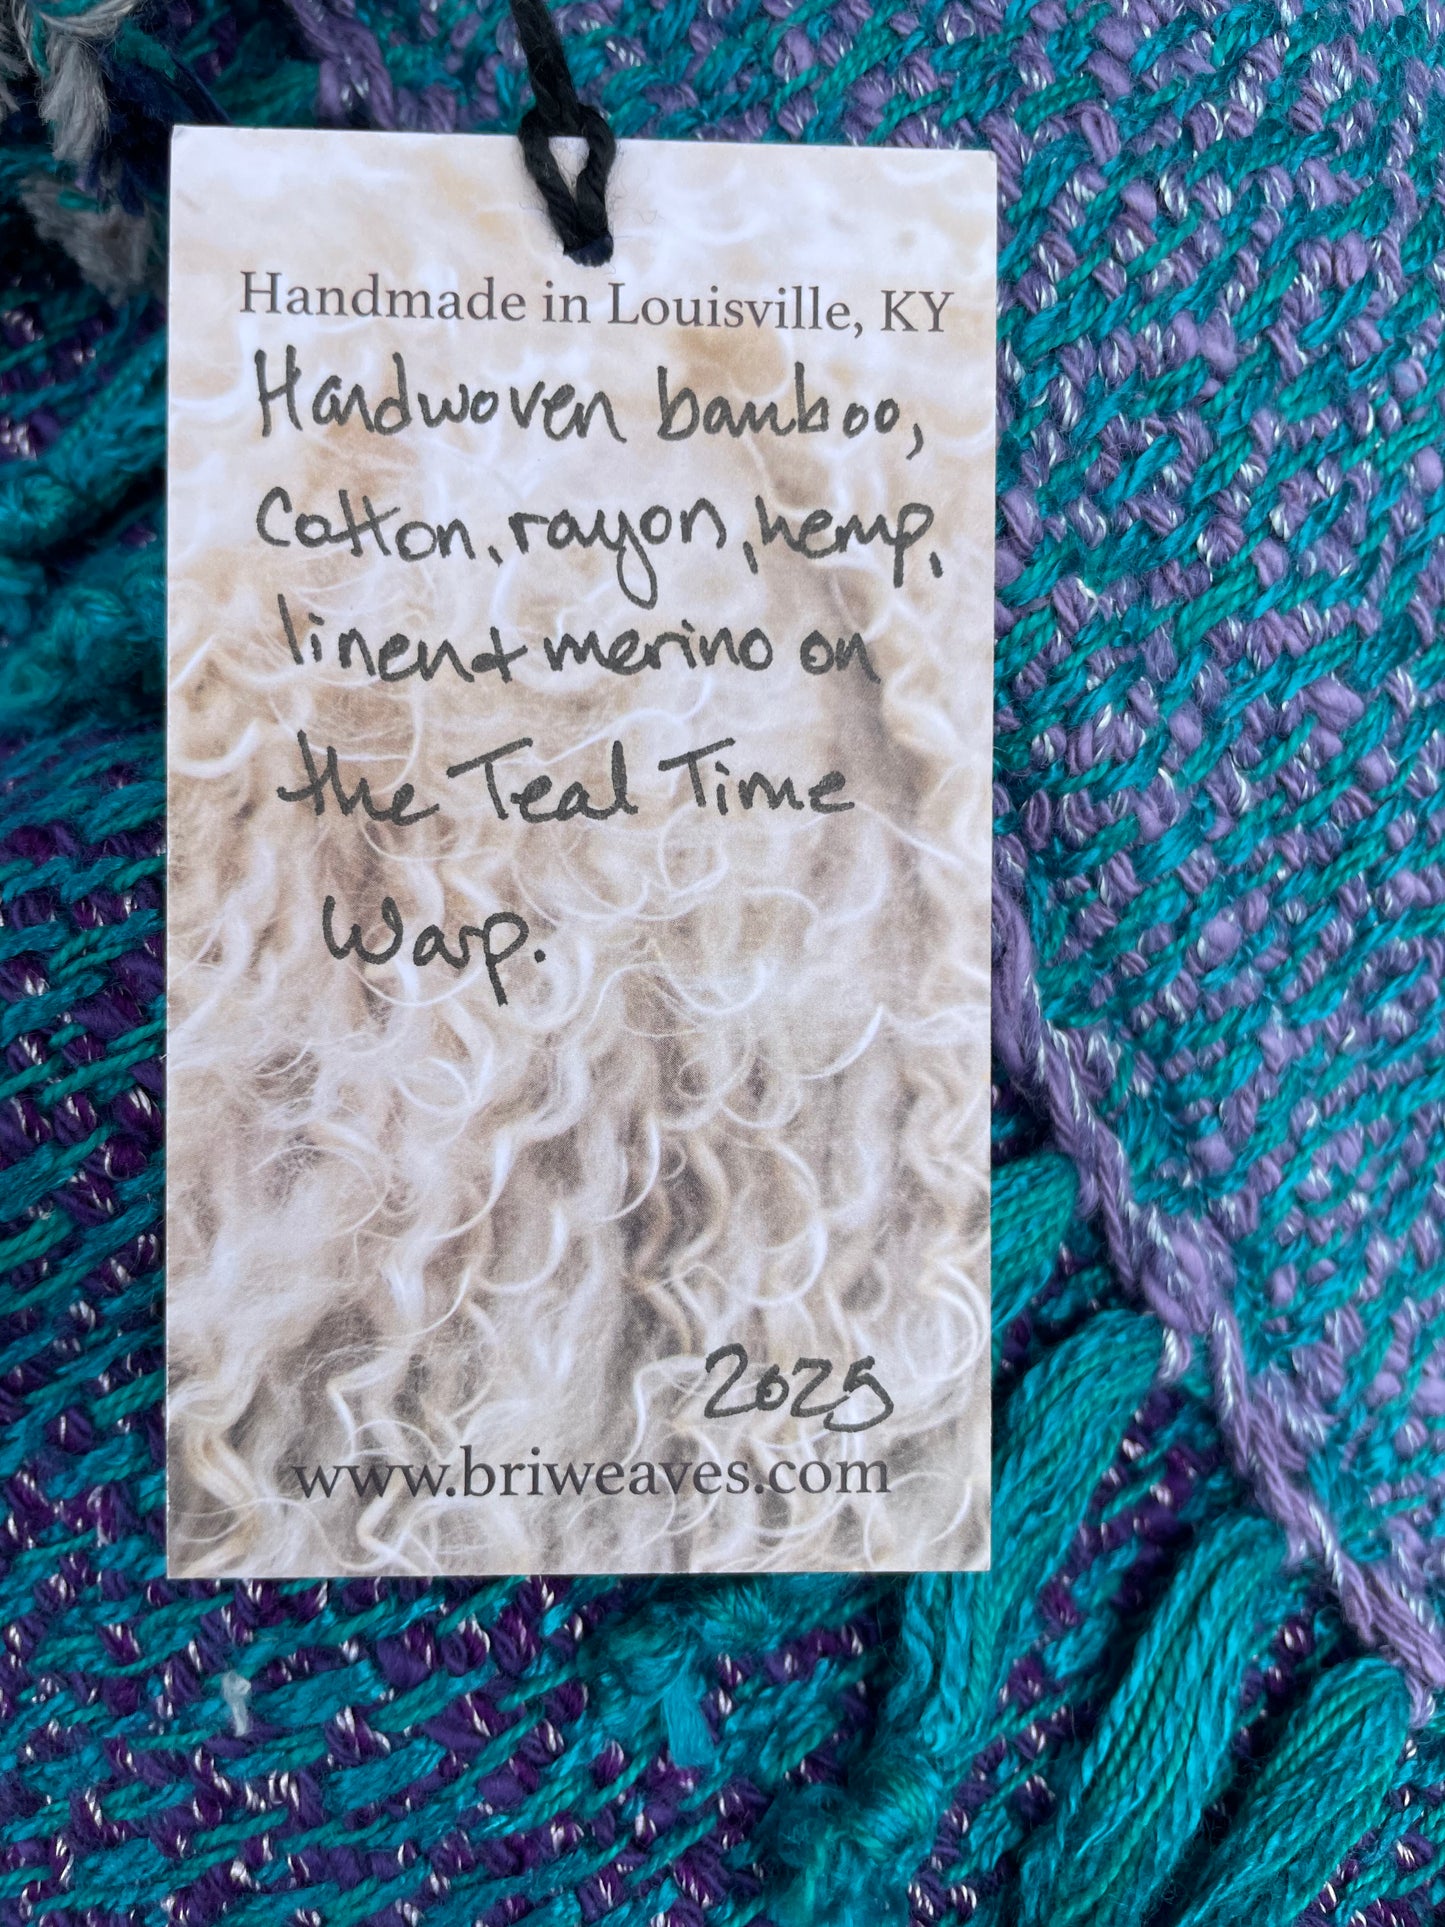 Handmade in Louisville, KY
Handwoven bamboo,
Cotton, rayon, hemp,
linen + merino on
the Teal Time
Warp.
2025
www.briweaves.com